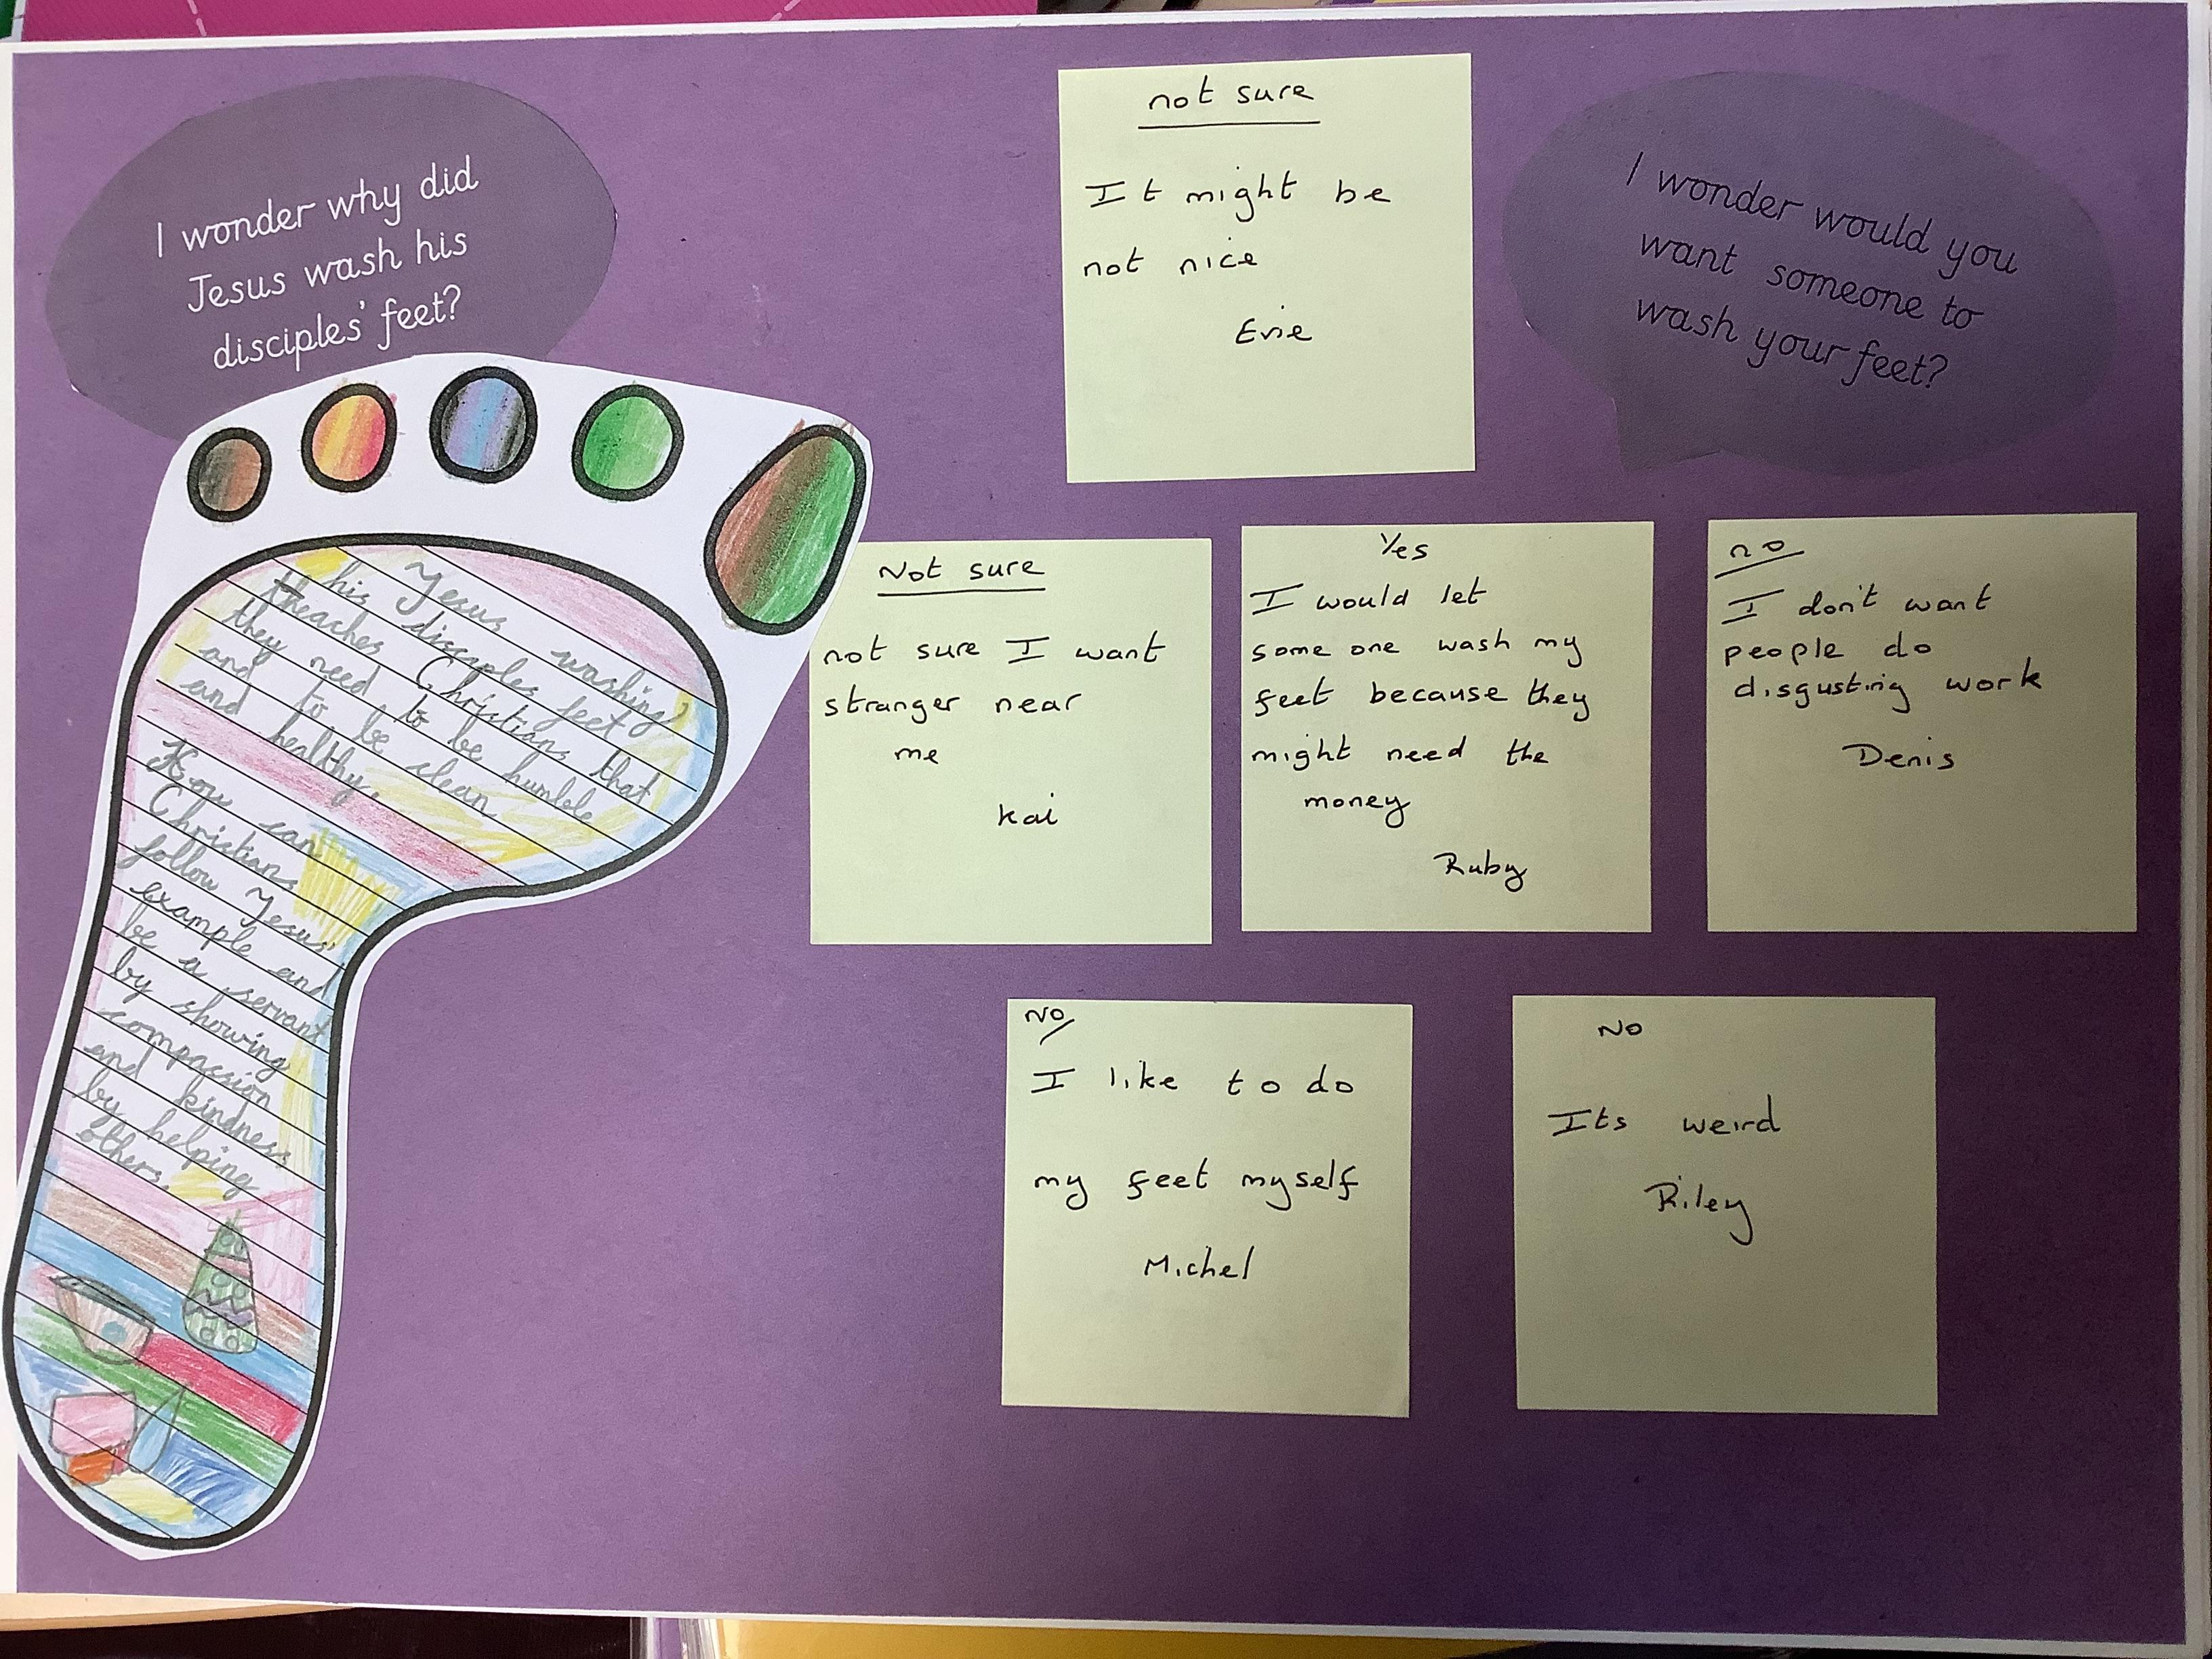 I wonder why did
Jesus wash his
disciples' feet?
Jesus washing
his disciples feet
theaches Christians that
they need to be humble
and to be clean
and healthy.
How can
Christians
follow Jesus'
example and
be a servant
by showing
compassion
and kindness
by helping
others.
not sure
It might be
not nice
Evie
I wonder would you
want someone to
wash your feet?
Not sure
not sure I want
stranger near
me
Kai
Yes
I would let
some one wash my
feet because they
might need the
money
Ruby
no
I don't want
people do
disgusting work
Denis
NO
I like to do
my feet myself
Michel
NO
Its weird
Riley